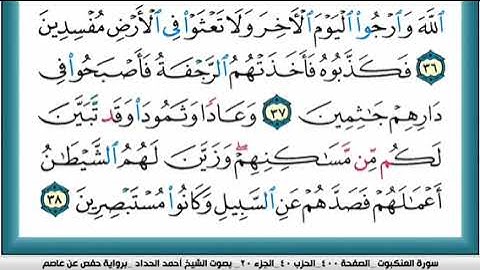 اللَّهَ وَارْجُوا الْيَوْمَ الْآخِرَ وَلَا تَعْثَوْا فِي الْأَرْضِ مُفْسِدِينَ
٣٦ فَكَذَّبُوهُ فَأَخَذَتْهُمُ الرَّجْفَةُ فَأَصْبَحُوا فِي
دَارِهِمْ جَٰثِمِينَ ٣٧ وَعَادًا وَثَمُودَا وَقَد تَّبَيَّنَ
لَكُم مِّن مَّسَٰكِنِهِمْ ۖ وَزَيَّنَ لَهُمُ الشَّيْطَٰنُ
أَعْمَٰلَهُمْ فَصَدَّهُمْ عَنِ السَّبِيلِ وَكَانُوا مُسْتَبْصِرِينَ ٣٨
سورة العنكبوت _الصفحة ٤٠٠ _الحزب ٤٠ _الجزء ٢٠ _بصوت الشيخ أحمد الحداد _برواية حفص عن عاصم